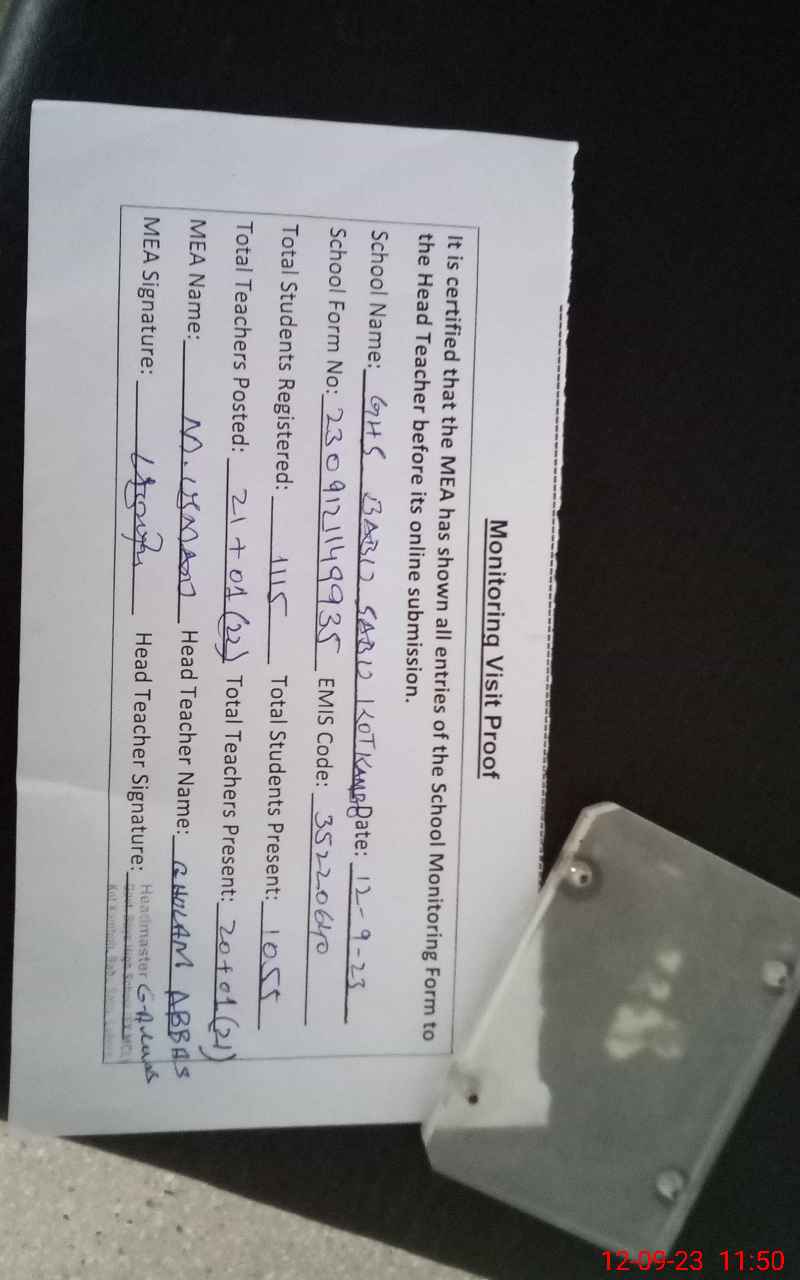 Monitoring Visit Proof
It is certified that the MEA has shown all entries of the School Monitoring Form to
the Head Teacher before its online submission.
School Name: GHS BABU SABU KOT KAMBO Date: 12-9-23
School Form No: 2309121149935 EMIS Code: 35220640
Total Students Registered: 1115 Total Students Present: 1055
Total Teachers Posted: 21+01(22) Total Teachers Present: 20+01(21)
MEA Name: M. USMAN Head Teacher Name: GHULAM ABBAS
MEA Signature: Head Teacher Signature:
Headmaster
12-09-23 11:50